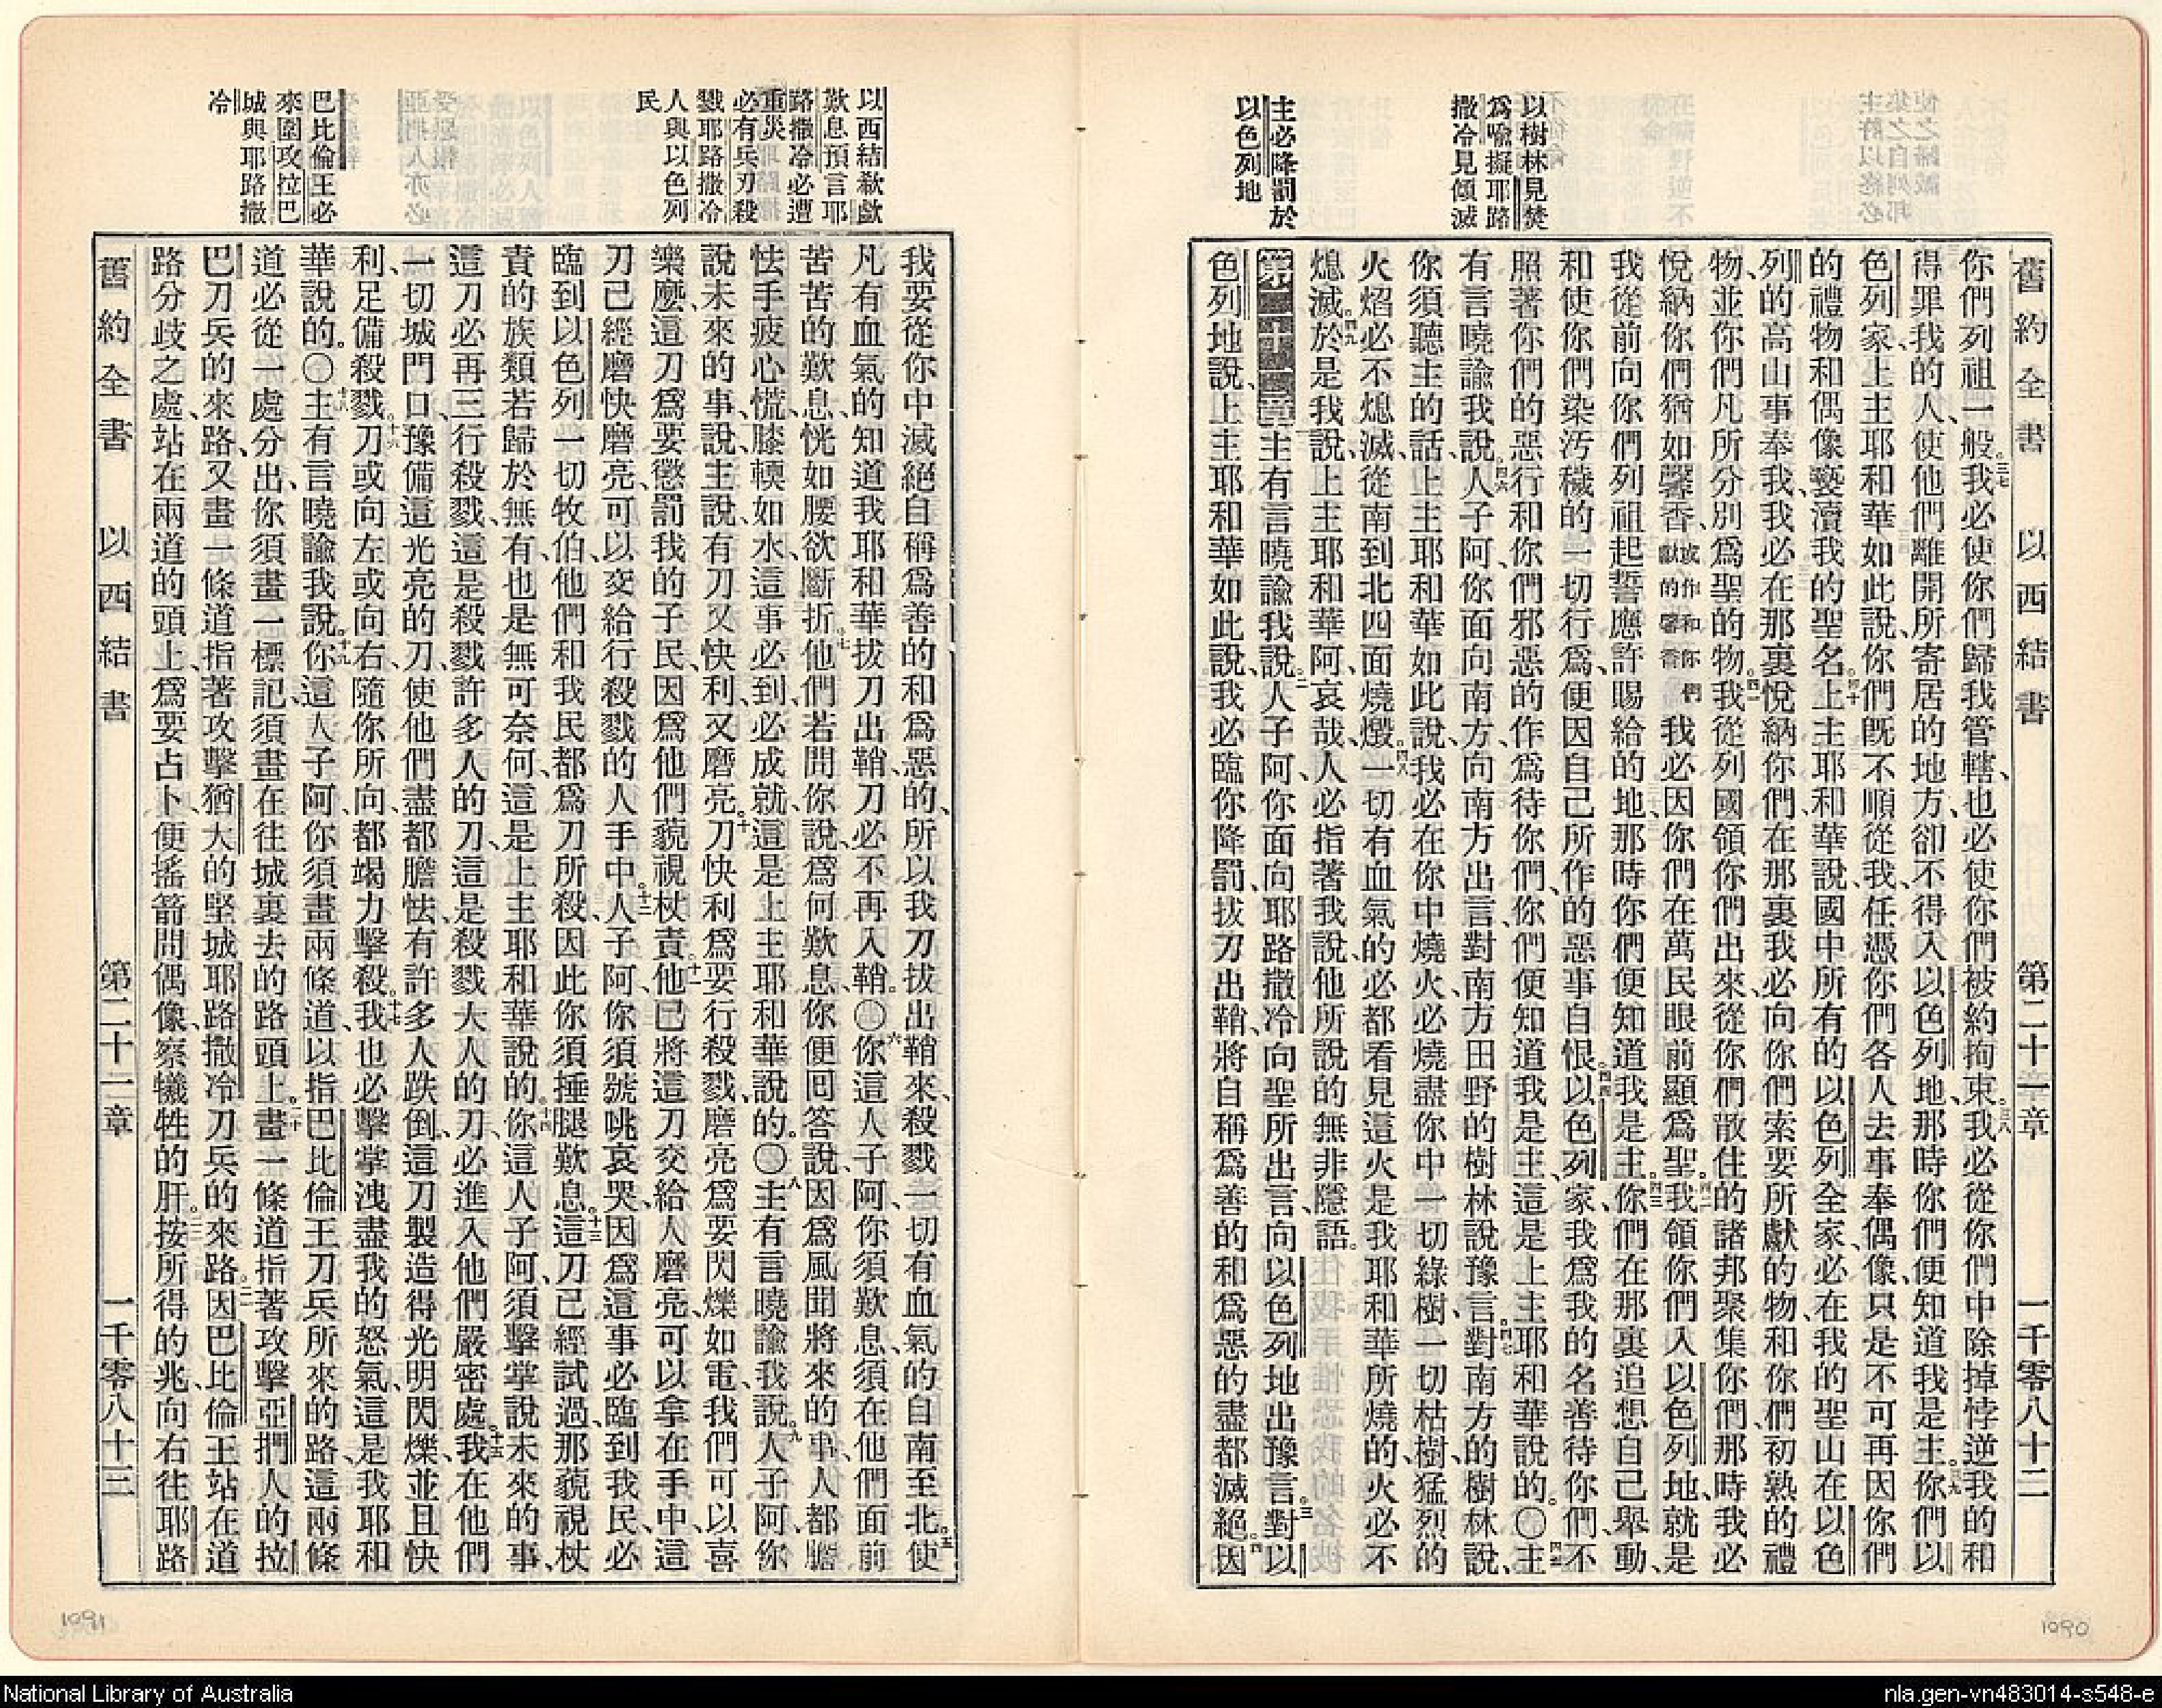 以樹林見焚
爲喩擬耶路
撒冷見傾滅
主必降罰於
以色列地
舊約全書 以西結書 第二十一章 一千零八十二
你們列祖一般。三七我必使你們歸我管轄、也必使你們被約拘束。三八我必從你們中除掉悖逆我的和
得罪我的人、使他們離開所寄居的地方、卻不得入以色列地、那時你們便知道我是主。三九你們以
色列家、上主耶和華如此說、你們既不順從我、任憑你們各人去事奉偶像、只是不可再因你們
的禮物和偶像褻瀆我的聖名。四十上主耶和華說、國中所有的以色列全家、必在我的聖山在以色
列的高山事奉我、我必在那裏悅納你們、在那裏我必向你們索要所獻的物、和你們初熟的禮
物、並你們凡所分別爲聖的物。四一我從列國領你們出來、從你們散住的諸邦聚集你們、那時我必
悅納你們猶如馨香、或作和你們獻的馨香我必因你們在萬民眼前顯爲聖。四二我領你們入以色列地、就是
我從前向你們列祖起誓應許賜給的地、那時你們便知道我是主。四三你們在那裏追想自己舉動、
和使你們染污穢的一切行爲、便因自己所作的惡事自恨。四四以色列家、我爲我的名善待你們、不
照著你們的惡行和你們邪惡的作爲待你們、你們便知道我是主、這是上主耶和華說的。〇四五主
有言曉諭我說、四六人子阿、你面向南方、向南方出言、對南方田野的樹林說豫言。四七對南方的樹林說、
你須聽主的話、上主耶和華如此說、我必在你中燒火、必燒盡你中一切綠樹、一切枯樹、猛烈的
火焰必不熄滅、從南到北四面燒燬。四八一切有血氣的必都看見這火是我耶和華所燒的、火必不
熄滅。四九於是我說、上主耶和華阿、哀哉、人必指著我說、他所說的無非隱語。
第二十一章主有言曉諭我說、二人子阿、你面向耶路撒冷、向聖所出言、向以色列地出豫言。三對以
色列地說、上主耶和華如此說、我必臨你降罰、拔刀出鞘、將自稱爲善的和爲惡的盡都滅絕。四因
以西結欷歔
歎息預言耶
路撒冷必遭
重災
必有兵刃殺
戮耶路撒冷
人與以色列
民
巴比倫王必
來圍攻拉巴
城與耶路撒
冷
我要從你中滅絕自稱爲善的和爲惡的、所以我刀拔出鞘來、殺戮一切有血氣的自南至北。五使
凡有血氣的知道我耶和華拔刀出鞘、刀必不再入鞘。〇六你這人子阿、你須歎息、須在他們面前
苦苦的歎息、恍如腰欲斷折。七他們若問你說、爲何歎息、你便回答說、因爲風聞將來的事、人都膽
怯、手疲、心慌、膝輭如水、這事必到、必成就、這是上主耶和華說的。〇八主有言曉諭我說、九人子阿、你
說未來的事、說、主說、有刀又快利、又磨亮。十刀快利爲要行殺戮、磨亮爲要閃爍如電、我們可以喜
樂麼、這刀爲要懲罰我的子民、因爲他們藐視杖責。十一他已將這刀交給人磨亮、可以拿在手中、這
刀已經磨快磨亮、可以交給行殺戮的人手中。十二人子阿、你須號咷哀哭、因爲這事必臨到我民、必
臨到以色列一切牧伯、他們和我民都爲刀所殺、因此你須捶腿歎息。十三這刀已經試過、那藐視杖
責的族類若歸於無有、也是無可奈何、這是上主耶和華說的。十四你這人子阿、須擊掌說未來的事、
這刀必再三行殺戮、這是殺戮許多人的刀、這是殺戮大人的刀、必進入他們嚴密處。十五我在他們
一切城門口、豫備這光亮的刀、使他們盡都膽怯、有許多人跌倒、這刀製造得光明閃爍、並且快
利、足備殺戮。十六刀或向左或向右、隨你所向、都竭力擊殺。十七我也必擊掌洩盡我的怒氣、這是我耶和
華說的。〇十八主有言曉諭我說、十九你這人子阿、你須畫兩條道、以指巴比倫王刀兵所來的路、這兩條
道必從一處分出、你須畫一標記、須畫在往城裏去的路頭上。二十畫一條道指著攻擊亞捫人的拉
巴刀兵的來路、又畫一條道指著攻擊猶大的堅城耶路撒冷刀兵的來路。二一因巴比倫王站在道
路分歧之處、站在兩道的頭上、爲要占卜、便搖箭問偶像、察犧牲的肝。二二按所得的兆、向右往耶路
舊約全書 以西結書 第二十一章 一千零八十三
1091
1090
National Library of Australia
nla.gen-vn483014-s548-e